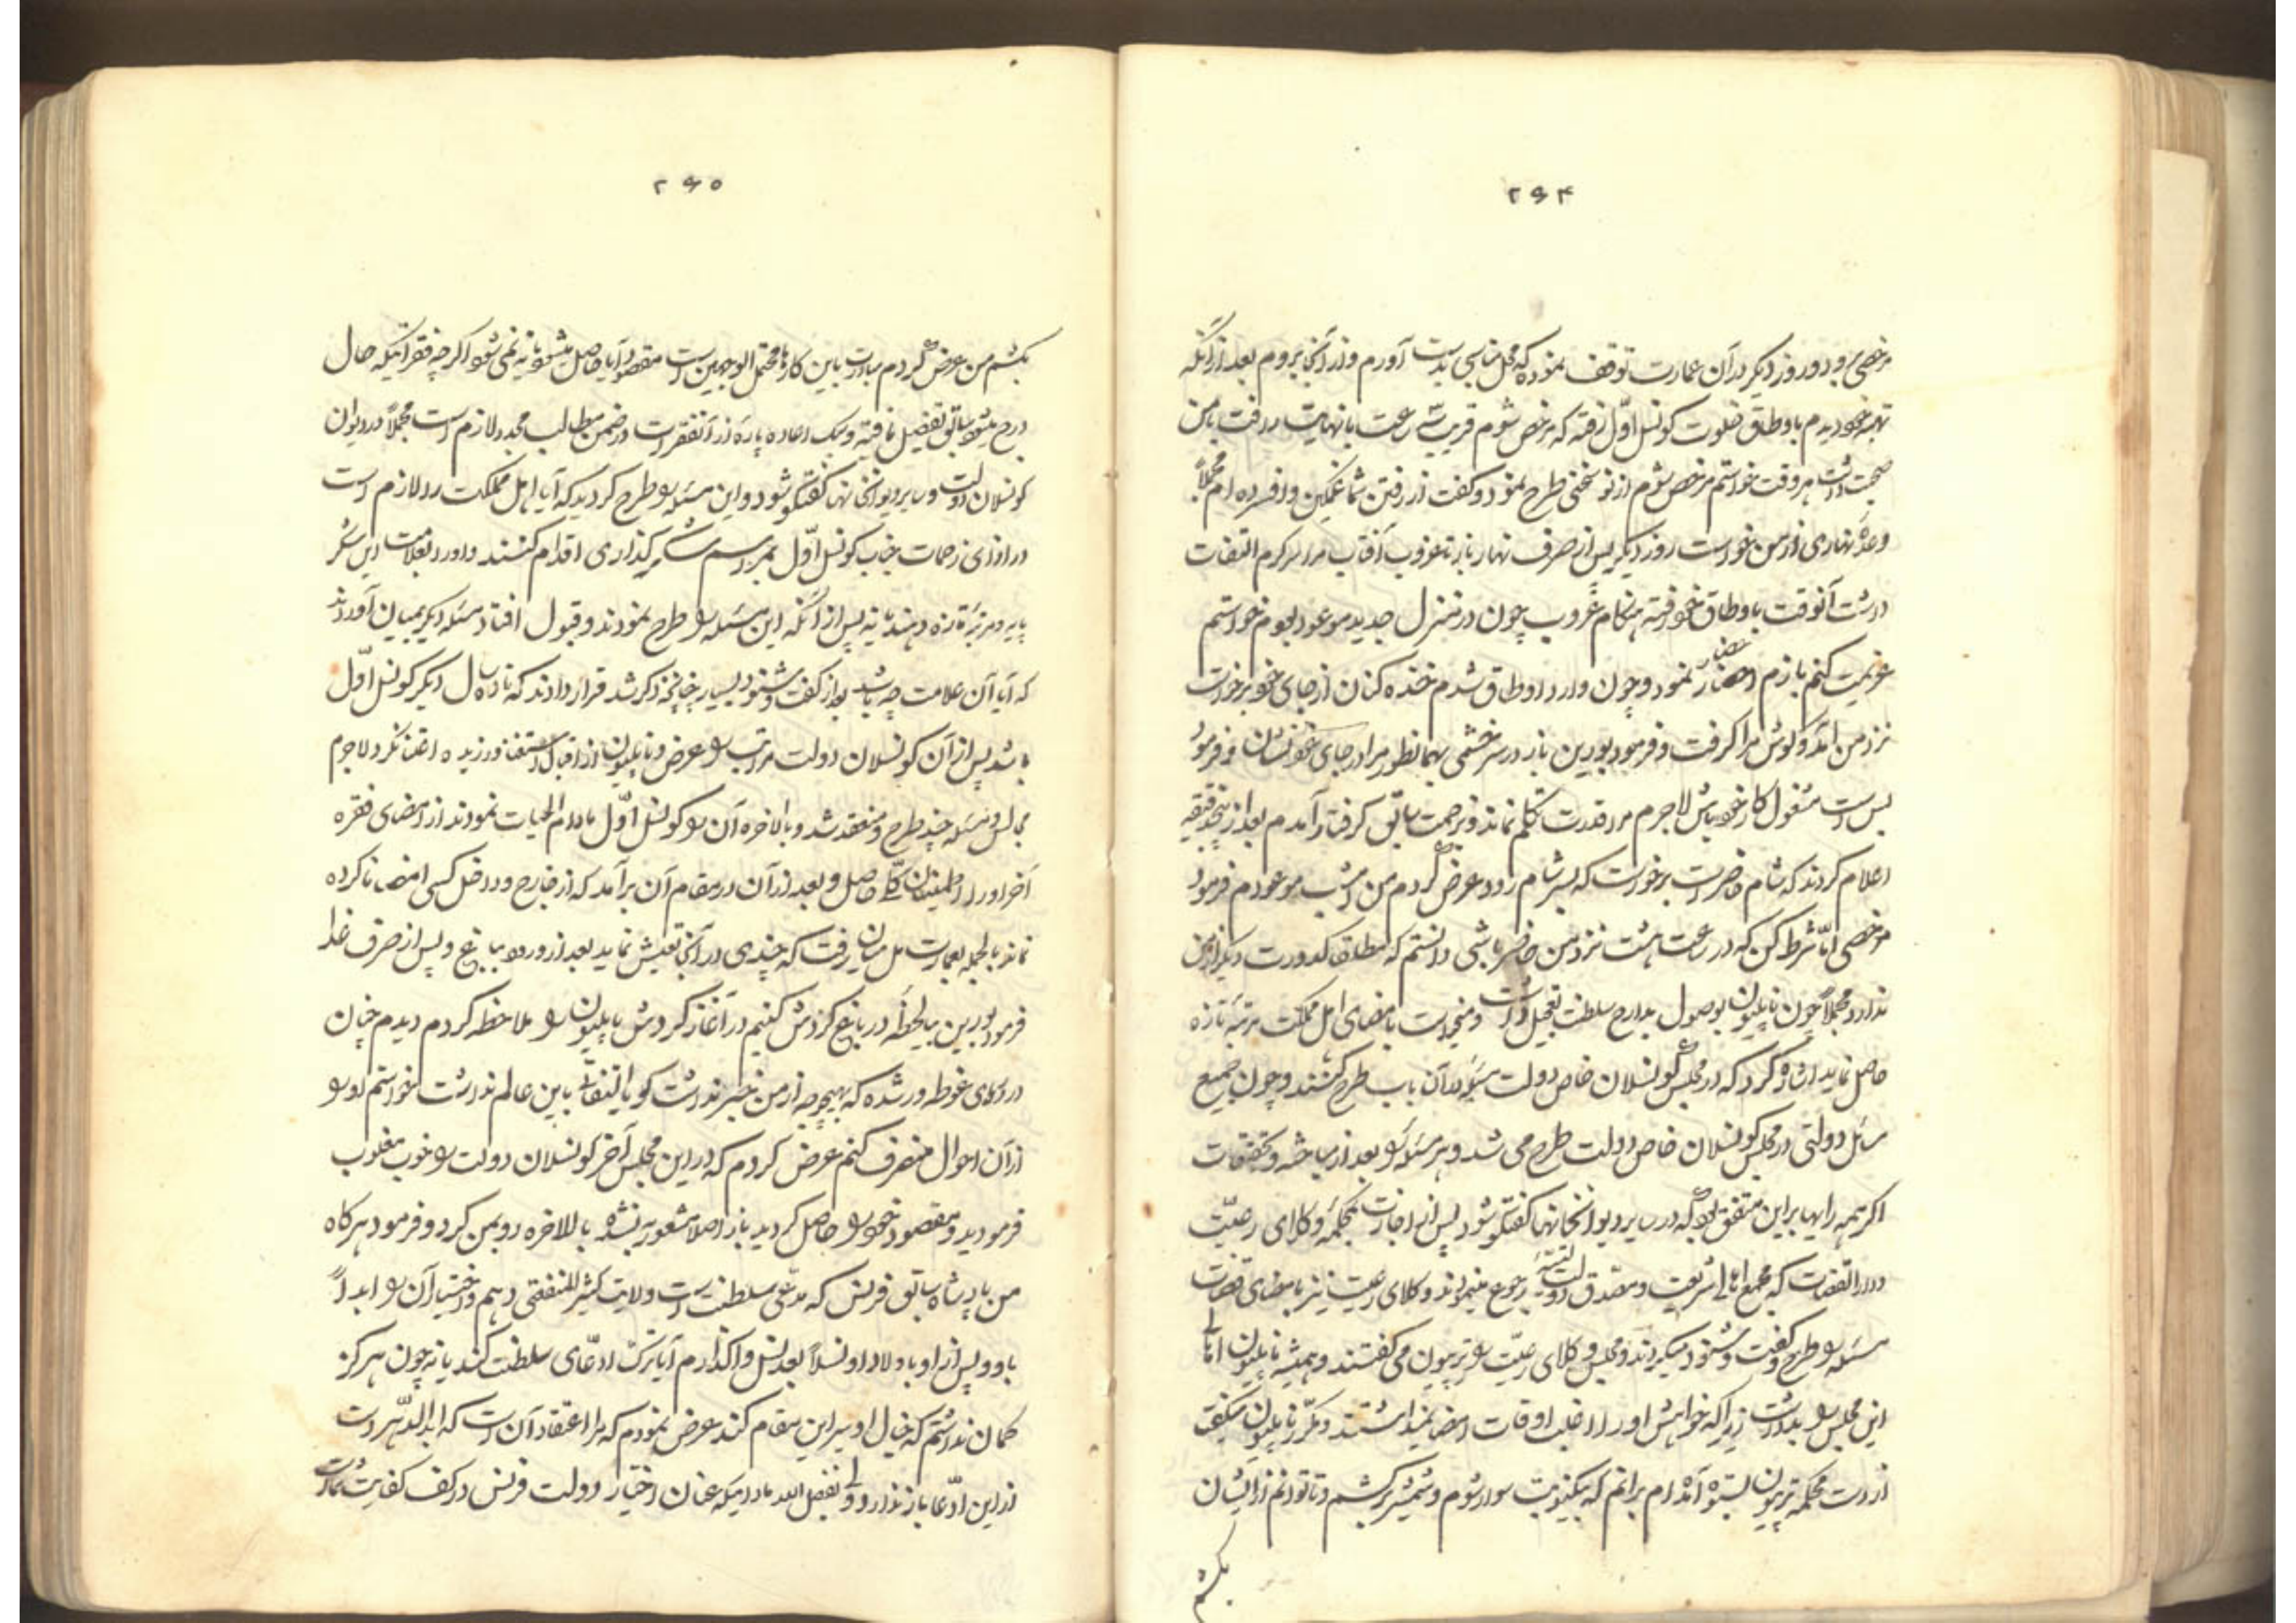 ۲۶۴
مرخصی و دو روز دیگر در آن عمارت توقف نموده که محل مناسبی بدست آورم و از آنجا بروم بعد از آنکه
تهیه خود دیدم باوطاق خلوت کونسل اول رفته که مرخص شوم قریب ساعت با نهایت رفت با من
صحبت داشت هر وقت خواستم مرخص شوم از نو سخنی طرح نمود و گفت از رفتن شما غمگین و افسرده ام مجملاً
وعدۀ نهاری از من خواست روز دیگر پس از صرف نهار باز تا غروب آفتاب مرا سرگرم التفات
داشت آنوقت باوطاق خود رفته هنگام غروب چون در منزل جدید موعود بودم خواستم
عزیمت کنم بازم احضار نمود و چون وارد اوطاق شدم خنده کنان از جای خود برخواست
نزد من آمد و گوش مرا گرفت و فرمود بورین باز در سرخشمی بهمانطور مرا در جای خود نشان فرمود
بس است مشغول کار خود باش لاجرم مرا قدرت تکلم نماند و بزحمت سابق گرفتار آمدم بعد از پنجدقیقه
اعلام کردند که شام حاضر است برخواست که بسر شام رود عرض کردم من امشب موعودم فرمود
مرخصی اما شرط کن که در ساعت هشت نزد من حاضر باشی دانستم که مطلقا کدورت دیگر از من
ندارد مجملاً چون ناپلیون بوصول مدارج سلطنت تعجیل داشت و میخواست بامضای اهل مملکت مرتبۀ تازه
حاصل نماید اشاره کرد که در مجلس کونسلان خاص دولت مسئله در آن باب طرح کنند و چون جمیع
مسائل دولتی در مجلس کونسلان خاص دولت طرح می شد و هر مسئله را بعد از مباحثه و تحقیقات
اگر همه رایها بر این متفق بود که در سایر دیوانخانها گفتگو شود پس از اجازت بمحکمۀ وکلای رعیّت
و دارالقضات که مجمع اهالی شریعت و مصدق دولت رجوع مینمودند وکلای رعیت نیز بامضای قضات
مسئله را طرح و گفت و شنود میکردند و مجلس وکلای رعیّت را تریبون می گفتند و همیشه ناپلیون اهالی
این مجلس را بد داشت زیرا که خواهش او را در اغلب اوقات امضا نمیداشتند و مکرر ناپلیون میگفت
از دست محکمه تریبون بستوه آمده ام برانم که یکنوبت سوار شوم و شمشیر برکشم و تا توانم از ایشان
بکشم
۲۶۵
بکشم من عرض کردم مبادرت باین کارها محتمل الوجهین است مقصود آیا حاصل میشود یا نه نمی شود اگر چه فقراتیکه حال
درج میشود سابق تفضیل یافته و لیک اعاده پاره از آنفقرات در ضمن مطالب مجدد لازم است مجملاً در دیوان
کونسلان دولت و سایر دیوانخانها گفتگو شود و این مسئله را طرح کردید که آیا اهل مملکت را لازم است
در ازای زحمات جناب کونسل اوّل بمراسم شکرگذاری اقدام کنند و او را بعلامت این شکر
پایه و مرتبۀ تازه دهند یا نه پس از آنکه این مسئله را طرح نمودند و قبول افتاد مسئله دیگر بمیان آوردند
که آیا آن علامت چه باشد بعد از گفت و شنود بسیار چنانچه ذکر شد قرار دادند که تا ده سال دیگر کونسل اوّل
باشد پس از آن کونسلان دولت مراتب را عرض و ناپلیون از اقبال استعفا ورزیده اعتنا نکرد لاجرم
مجالس و مسئله چند طرح و منعقد شد و بالاخره آن را کونسل اوّل مادام الحیات نمودند از امضای فقره
آخر او را اطمینان کلّی حاصل و بعد از آن در مقام آن برآمد که از خارج و داخل کسی امضا ناکرده
نماند بالجمله بعمارت مل میزان رفت که چندی در آنجا تعیش نماید بعد از ورود بباغ و پس از صرف غذا
فرمود بورین بیا لحظۀ در باغ گردش کنیم در آغاز گردش ناپلیون را ملاحظه کردم دیدم چنان
در دریای غوطه ور شده که بهیچوجه از من خبر نداشت گویا التفاتی باین عالم نداشت خواستم او را
از آن احوال منصرف کنم عرض کردم که در این مجلس آخر کونسلان دولت را خوب مغلوب
فرمودید و مقصود خود را حاصل کردید باز اصلا مشعور نشده باللاخره رو بمن کرد و فرمود هرگاه
من بپادشاه سابق فرنس که مدّعی سلطنت است ولایت کثیر المنفعتی دهم و اختیار آن را ابداً
باو و پس از او باولاد او نسلاً بعد نسل واگذارم آیا ترک ادعّای سلطنت کند یا نه چون هرگز
گمان نداشتم که خیال او سیر این مقام کند عرض نمودم که مرا اعتقاد آن است که ابدالدّهر دست
از این ادّعا باز ندارد ولی بفضل الله مادامیکه عنان اختیار دولت فرنس در کف کفایت شماست